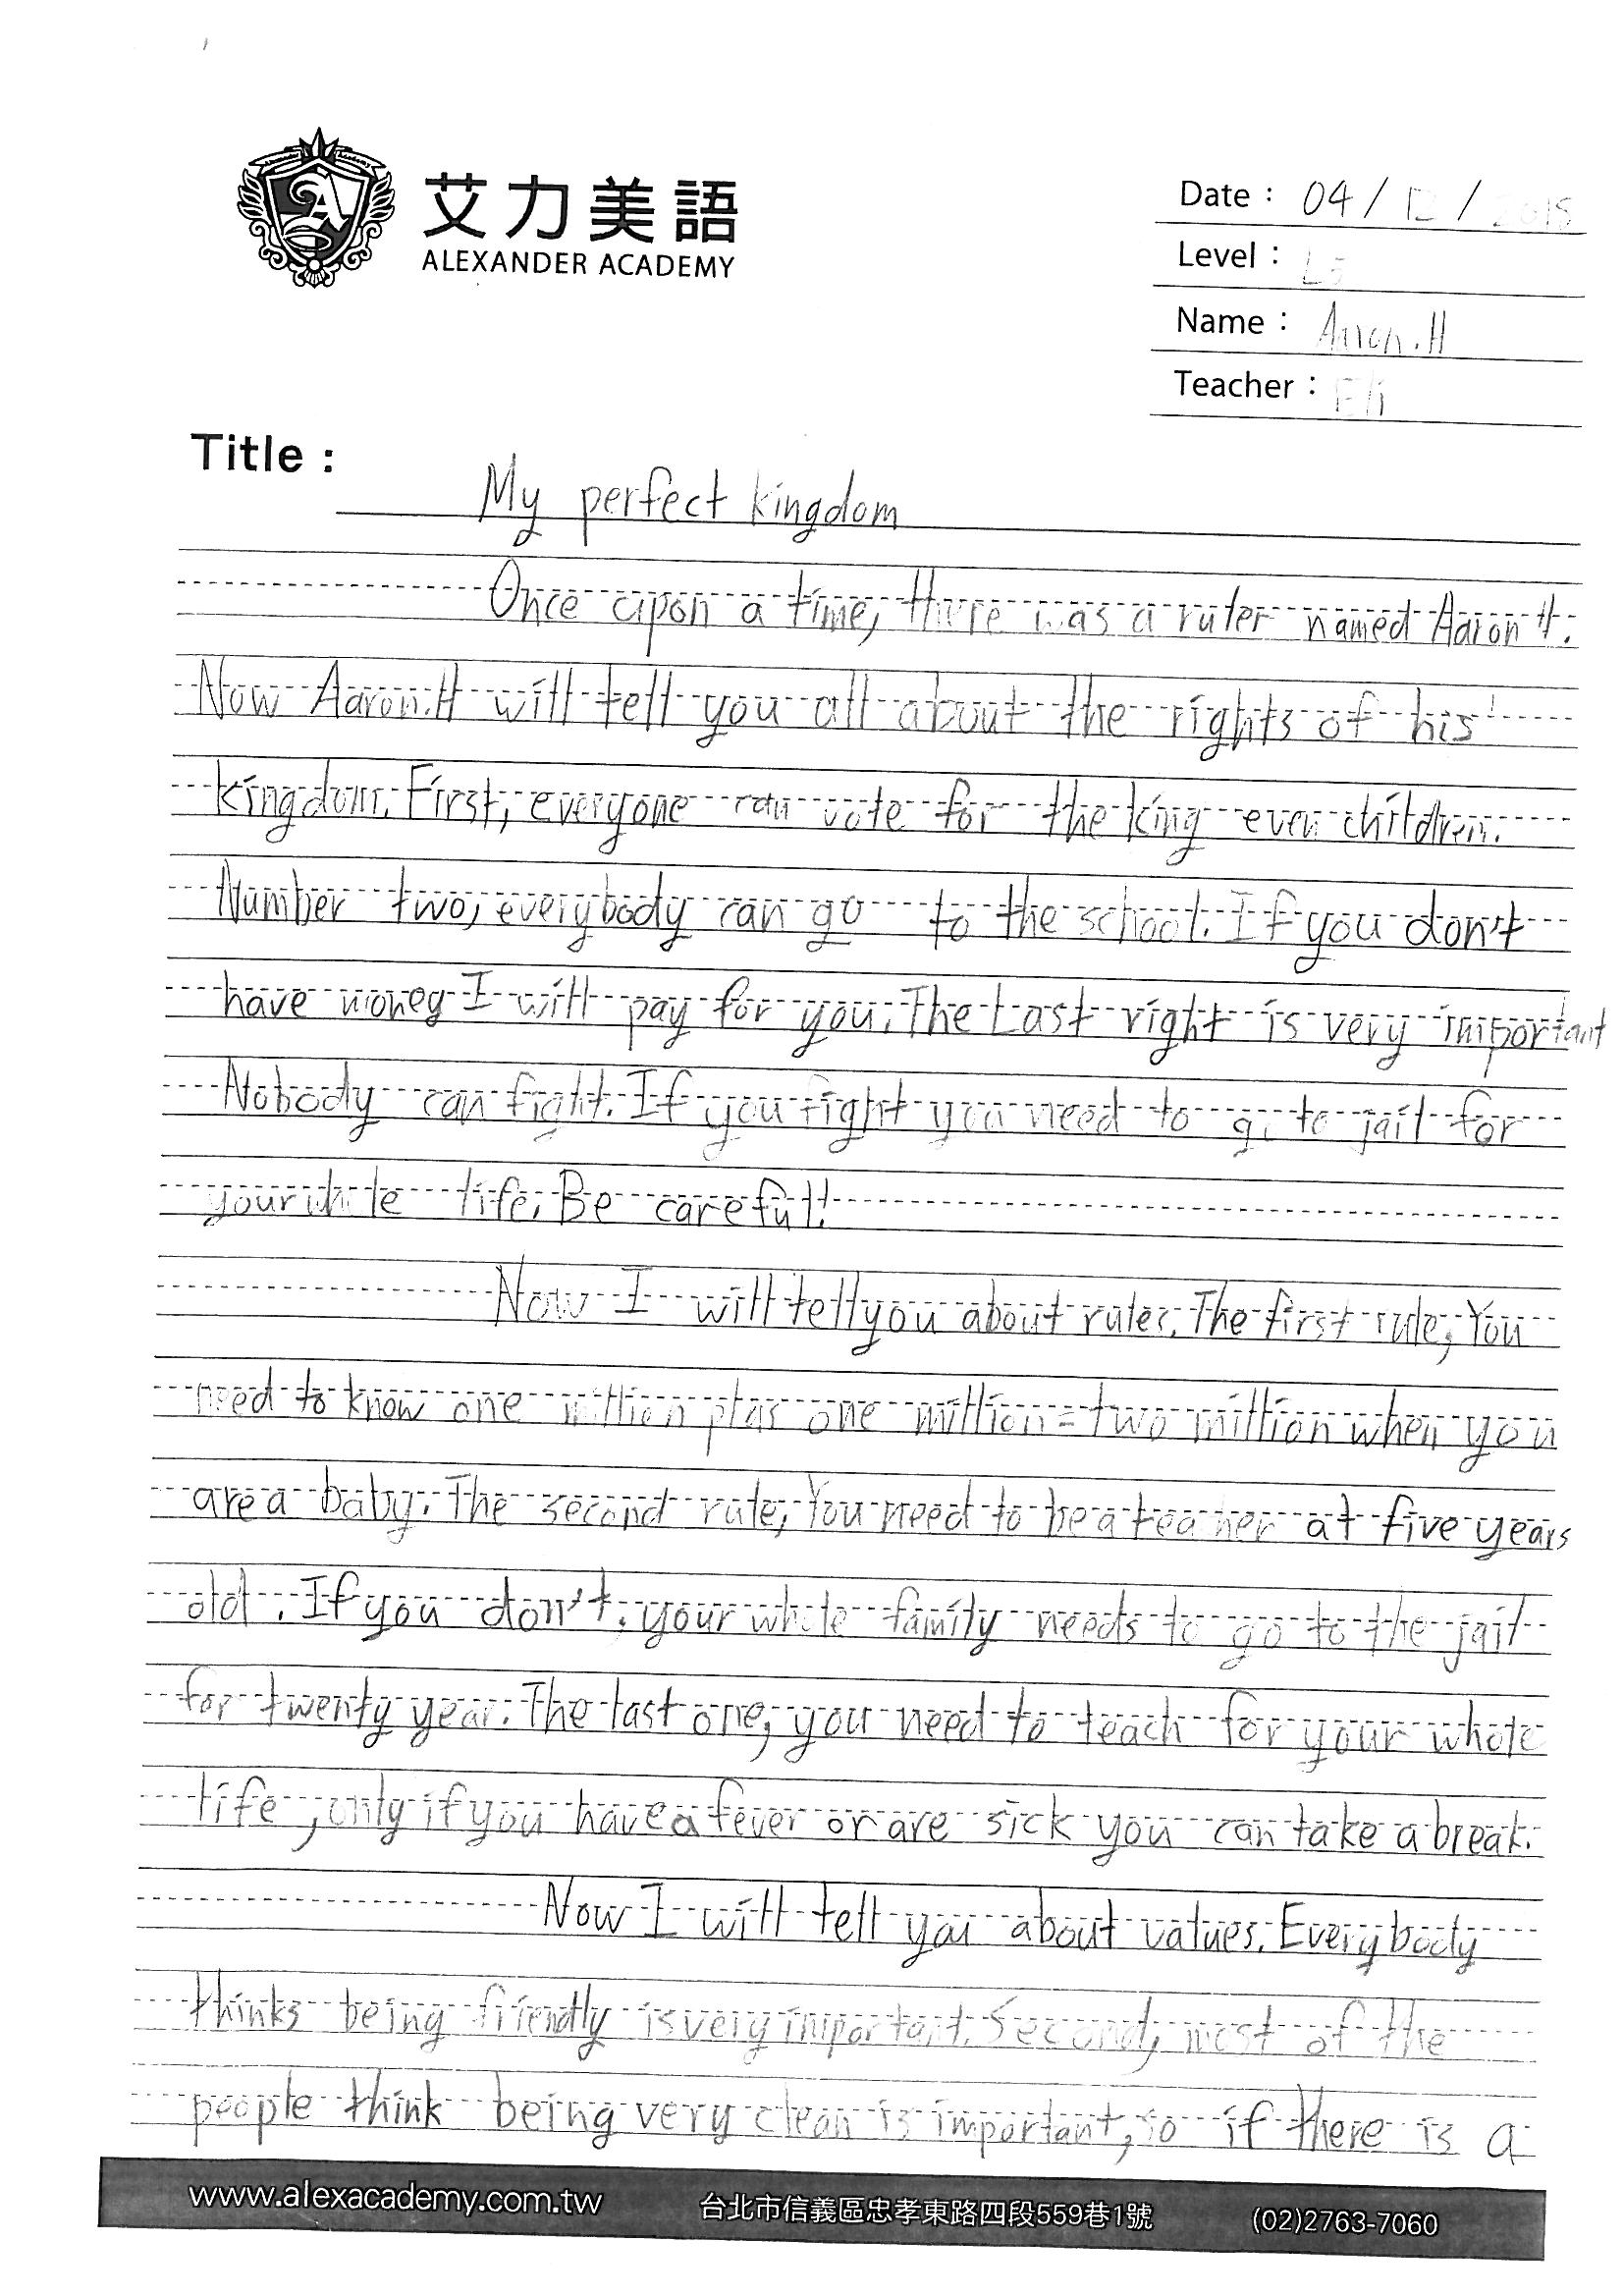 艾力美語
ALEXANDER ACADEMY
Date : 04 / 12 / 2018
Level : L5
Name : Aaron.H
Teacher : Eli
Title : My perfect kingdom
Once upon a time, there was a ruler named Aaron H.
Now Aaron.H will tell you all about the rights of his
kingdom. First, everyone can vote for the king even children.
Number two, everybody can go to the school. If you don't
have money I will pay for you. The Last right is very important
Nobody can fight. If you fight you need to go to jail for
your whole life. Be careful!
Now I will tell you about rules. The first rule, You
need to know one million plas one million = two million when you
are a baby. The second rule, You need to be a teacher at five years
old. If you don't, your whole family needs to go to the jail
for twenty year. The last one, you need to teach for your whole
life, only if you have a fever or are sick you can take a break.
Now I will tell you about values. Everybody
thinks being friendly is very important. Second, most of the
people think being very clean is important, so if there is a
www.alexacademy.com.tw 台北市信義區忠孝東路四段559巷1號 (02)2763-7060